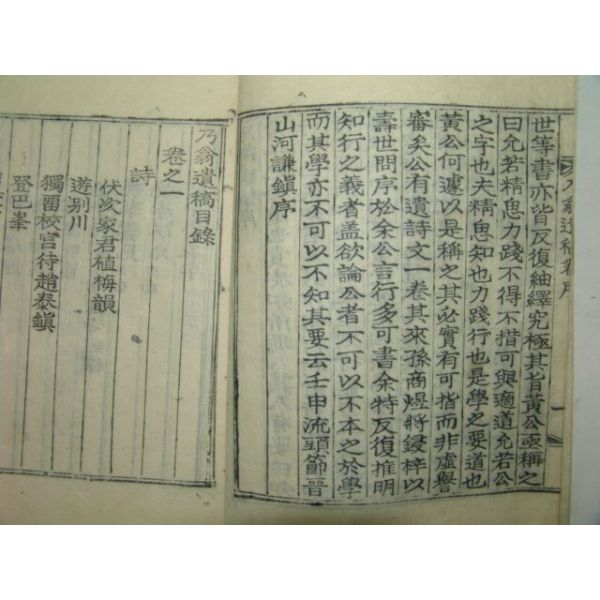 乃翁遺稿卷序
世等書亦皆反復紬繹究極其旨黃公亟稱之
曰允若精思力踐不得不措可與適道允若公
之字也夫精思知也力踐行也是學之要道也
黃公何遽以是稱之其必實有可指而非虛譽
審矣公有遺詩文一卷其來孫商煜將鋟梓以
壽世問序於余公言行多可書余特反復推明
知行之義者盖欲論公者不可以不本之於學
而其學亦不可以不知其要云壬申流頭節晉
山河謙鎭序
乃翁遺稿目錄
卷之一
詩
伏次家君植梅韻
遊別川
獨留校宮待趙泰鎭
登巴峯